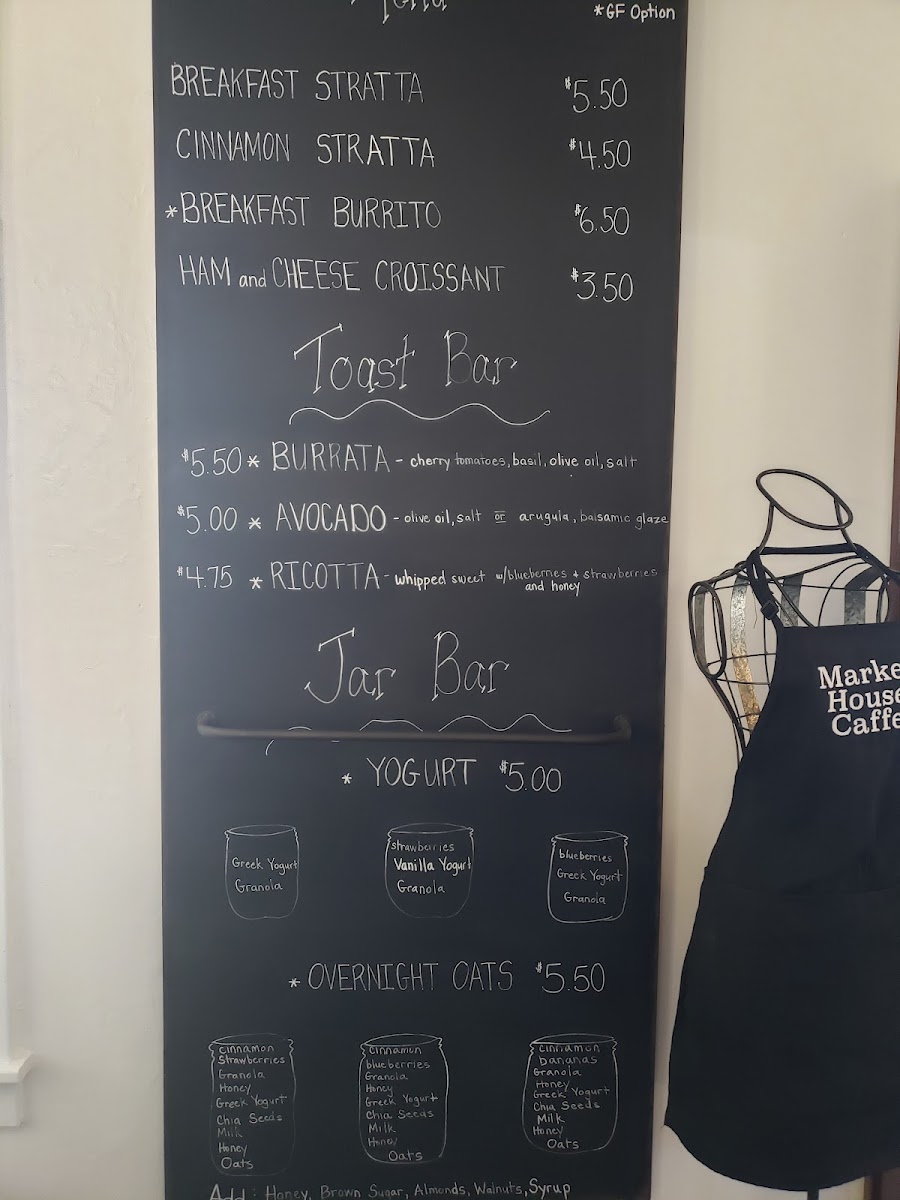 *GF Option
BREAKFAST STRATTA $5.50
CINNAMON STRATTA $4.50
*BREAKFAST BURRITO $6.50
HAM and CHEESE CROISSANT $3.50
Toast Bar
$5.50 * BURRATA - cherry tomatoes, basil, olive oil, salt
$5.00 * AVOCADO - olive oil, salt or arugula, balsamic glaze
$4.75 * RICOTTA - whipped sweet w/blueberries + strawberries
and honey
Jar Bar
* YOGURT $5.00
Greek Yogurt
Granola
strawberries
Vanilla Yogurt
Granola
blueberries
Greek Yogurt
Granola
* OVERNIGHT OATS $5.50
cinnamon
Strawberries
Granola
Honey
Greek Yogurt
Chia Seeds
Milk
Honey
Oats
cinnamon
blueberries
Granola
Honey
Greek Yogurt
Chia Seeds
Milk
Honey
Oats
cinnamon
bananas
Granola
Honey
Greek Yogurt
Chia Seeds
Milk
Honey
Oats
Add: Honey, Brown Sugar, Almonds, Walnuts, Syrup
Marke
House
Caffe